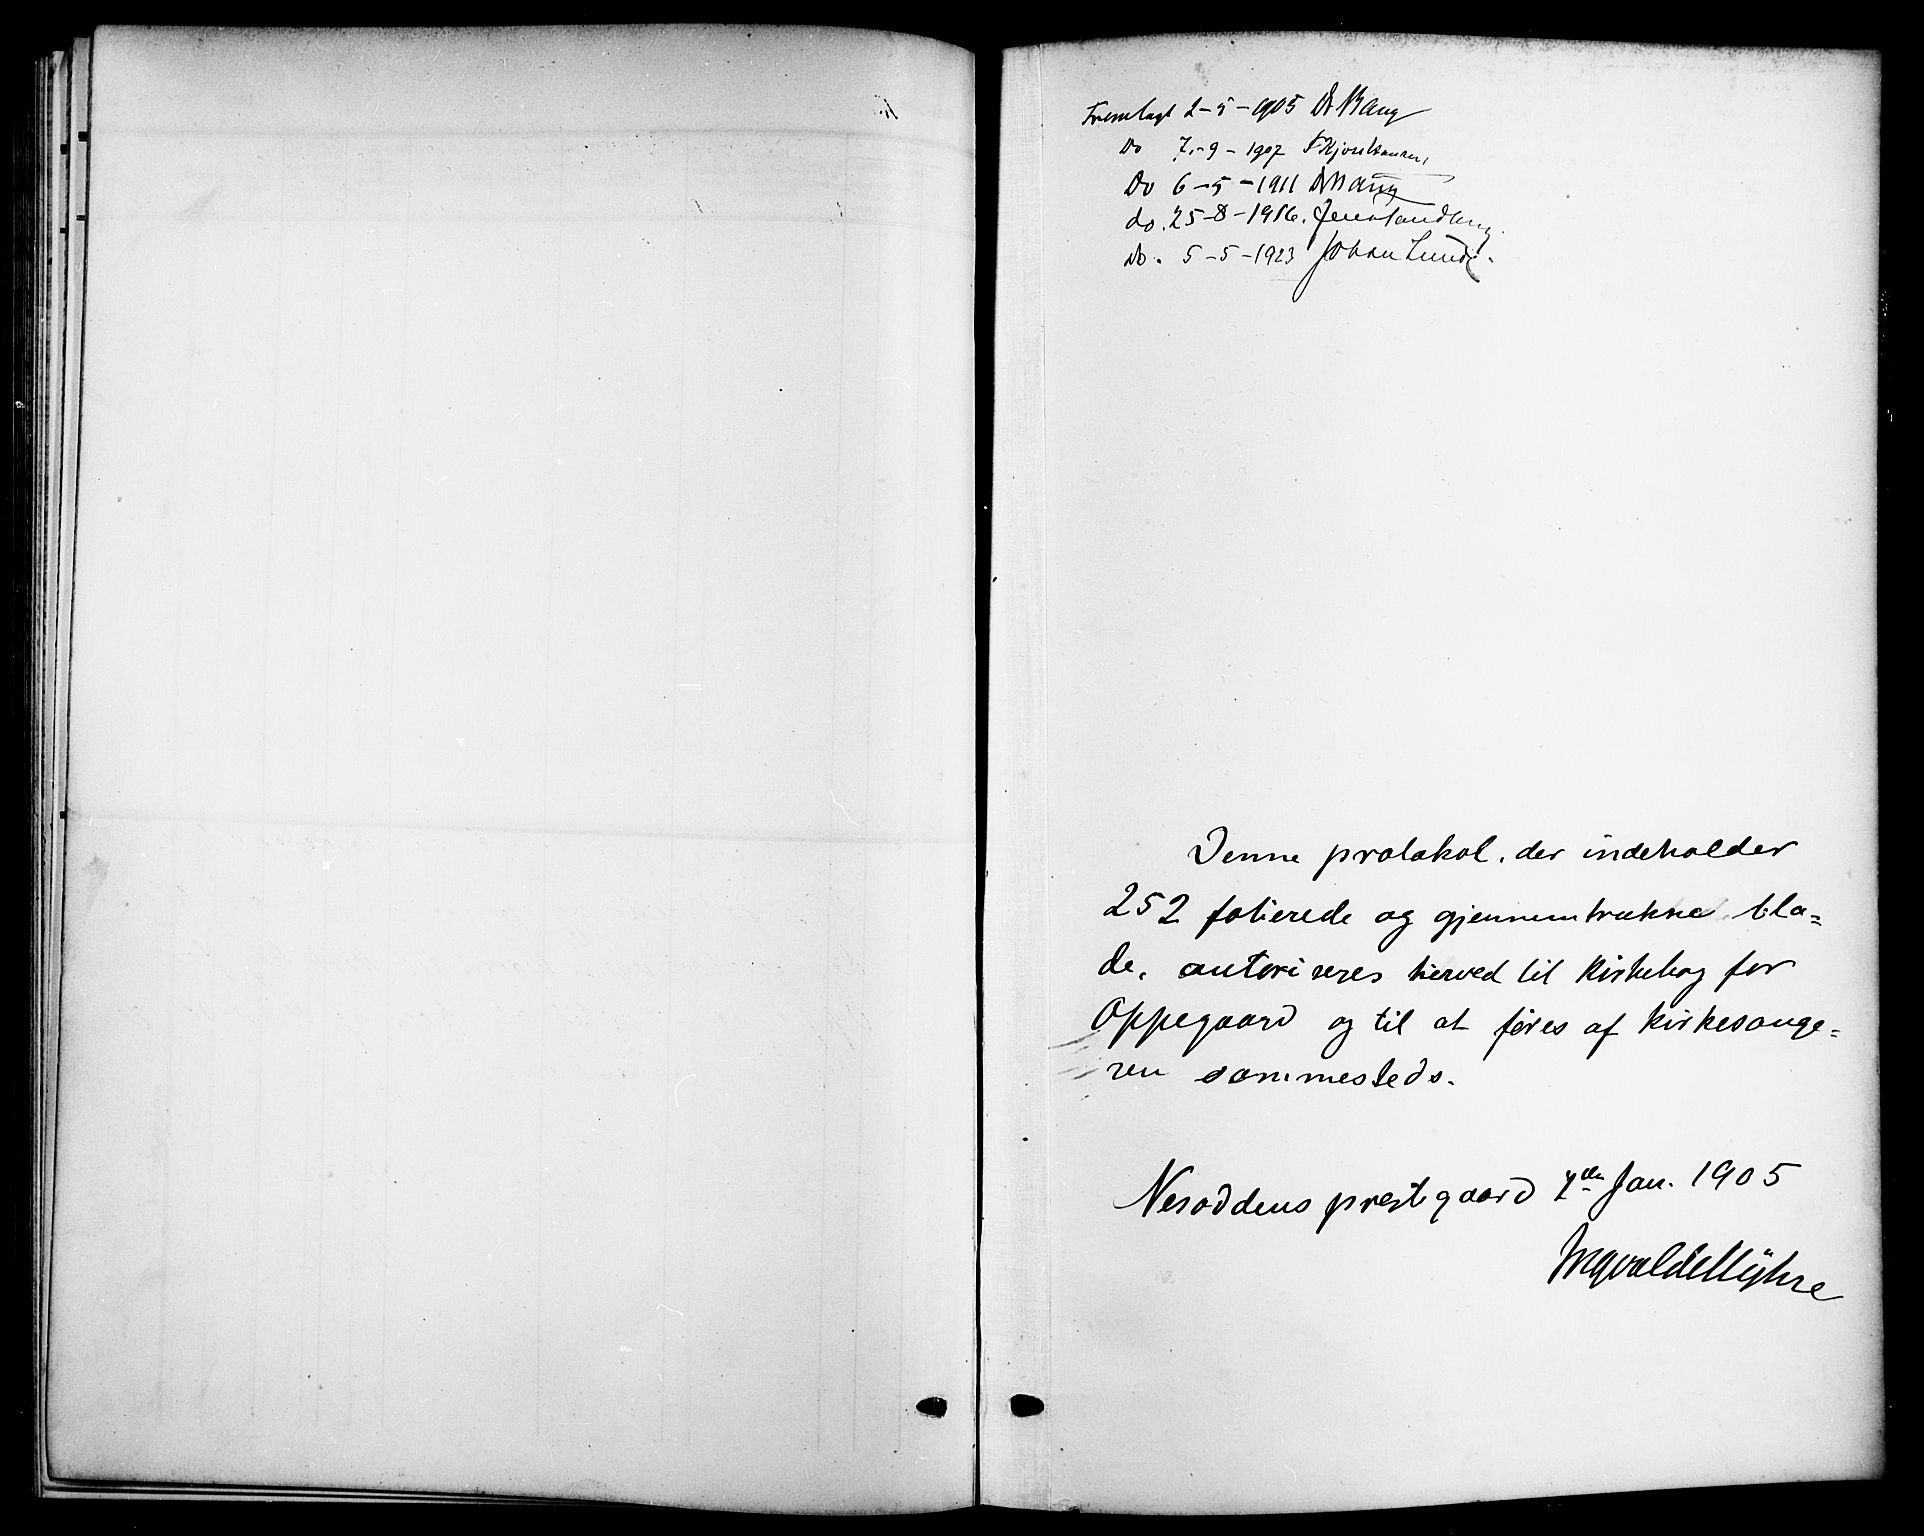 Fremlagt 2-5-1905 Dr Bang
Do 7.-9-1907
Do 6-5-1911 Dr Bang
do. 25-8-1916. Jens Tandberg.
do. 5-5-1923 Johan Lunde.
Denne protokol, der indeholder
252 folierede og gjennemtrukne bla=
de, autoriseres herved til kirkebog for
Oppegaard og til at føres af kirkesange=
ren sammesteds.
Nesoddens prestegaard 7de Jan. 1905
Ingvald Myhre